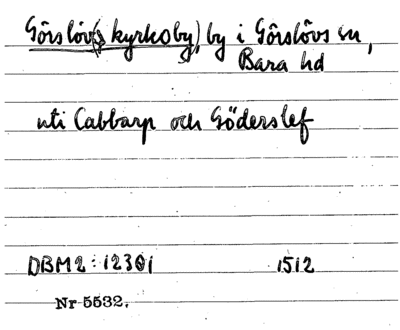 Görslöv(s kyrkoby), by i Görslövs sn,
Bara hd
uti Cabbarp och Göderslef
DBM2:12301 1512
Nr 5532.